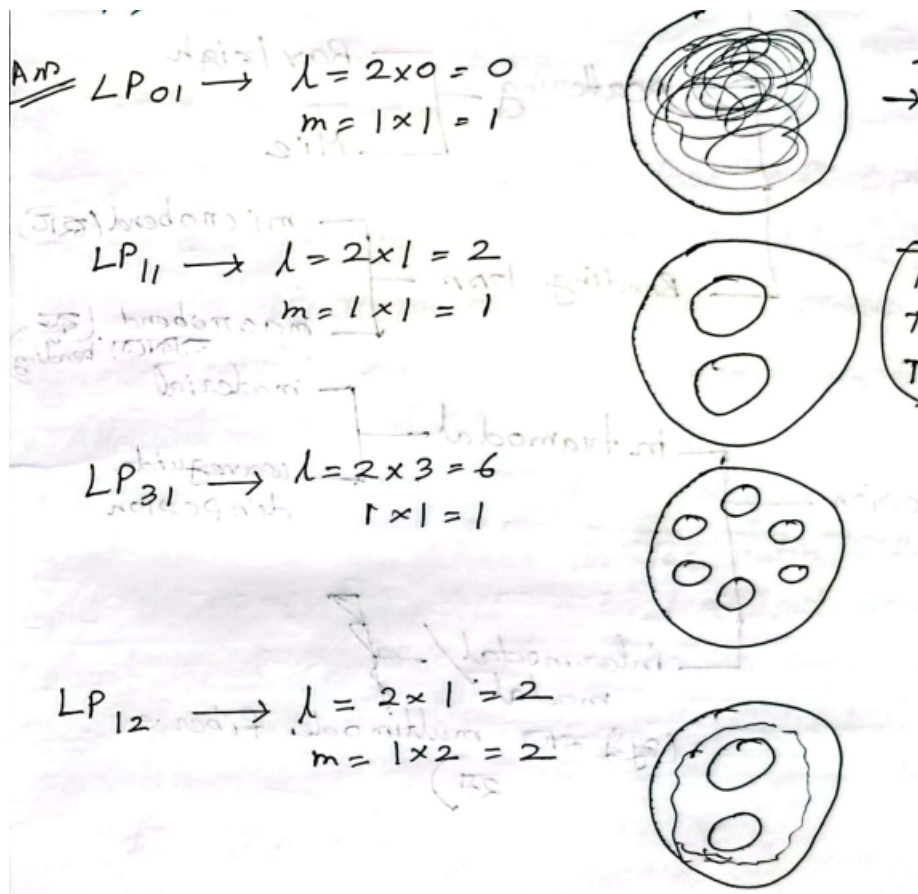 Ans LP₀₁ → l = 2×0 = 0
m = 1×1 = 1
LP₁₁ → l = 2×1 = 2
m = 1×1 = 1
LP₃₁ → l = 2×3 = 6
1×1 = 1
LP₁₂ → l = 2×1 = 2
m = 1×2 = 2